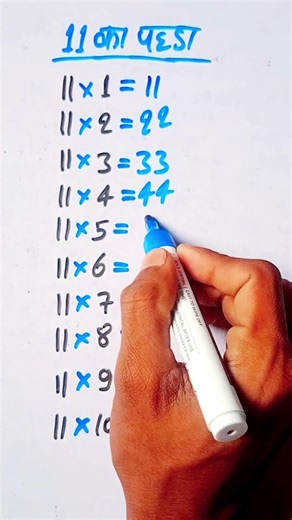 11 का पहाडा
11 × 1 = 11
11 × 2 = 22
11 × 3 = 33
11 × 4 = 44
11 × 5 =
11 × 6 =
11 × 7
11 × 8
11 × 9
11 × 10